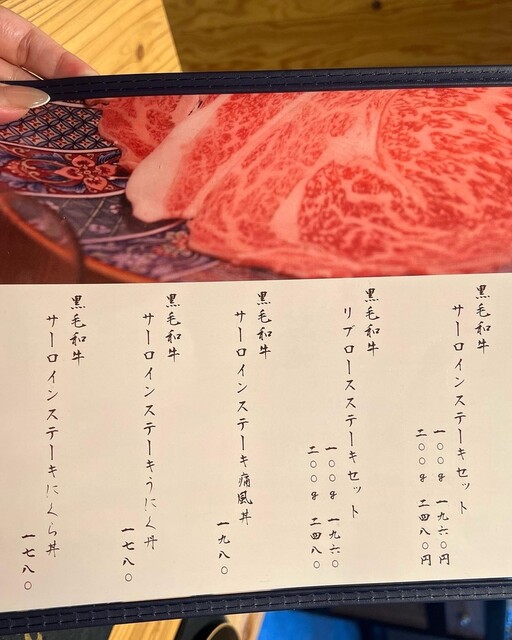 黒毛和牛
サーロインステーキセット
一〇〇g 一九六〇円
二〇〇g 二四八〇円
黒毛和牛
リブロースステーキセット
一〇〇g 一九六〇
二〇〇g 二四八〇
黒毛和牛
サーロインステーキ痛風丼
一九八〇
黒毛和牛
サーロインステーキうにく丼
一七八〇
黒毛和牛
サーロインステーキにくら丼
一七八〇